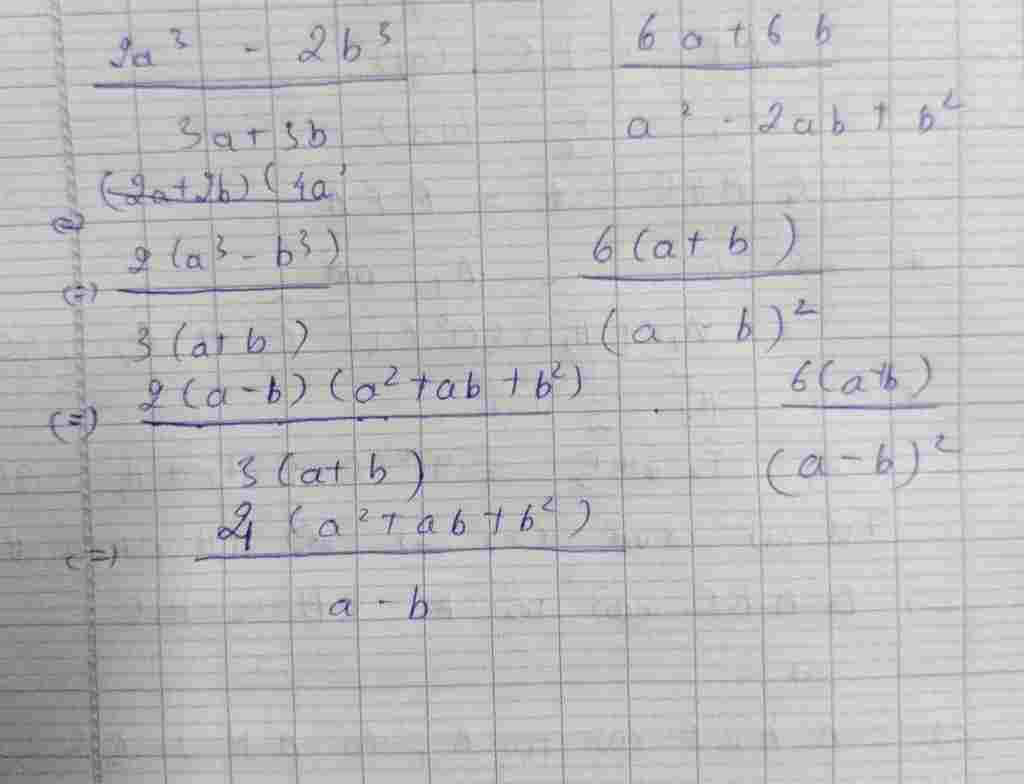 2a³ - 2b³ 6a + 6b
3a + 3b a² - 2ab + b²
(2a+2b) (4a
(=) 2(a³ - b³) 6(a + b)
3(a + b) (a b)²
(=) 2(a-b)(a² + ab + b²) . 6(a+b)
3(a + b) (a - b)²
(=) 4(a² + ab + b²)
a - b